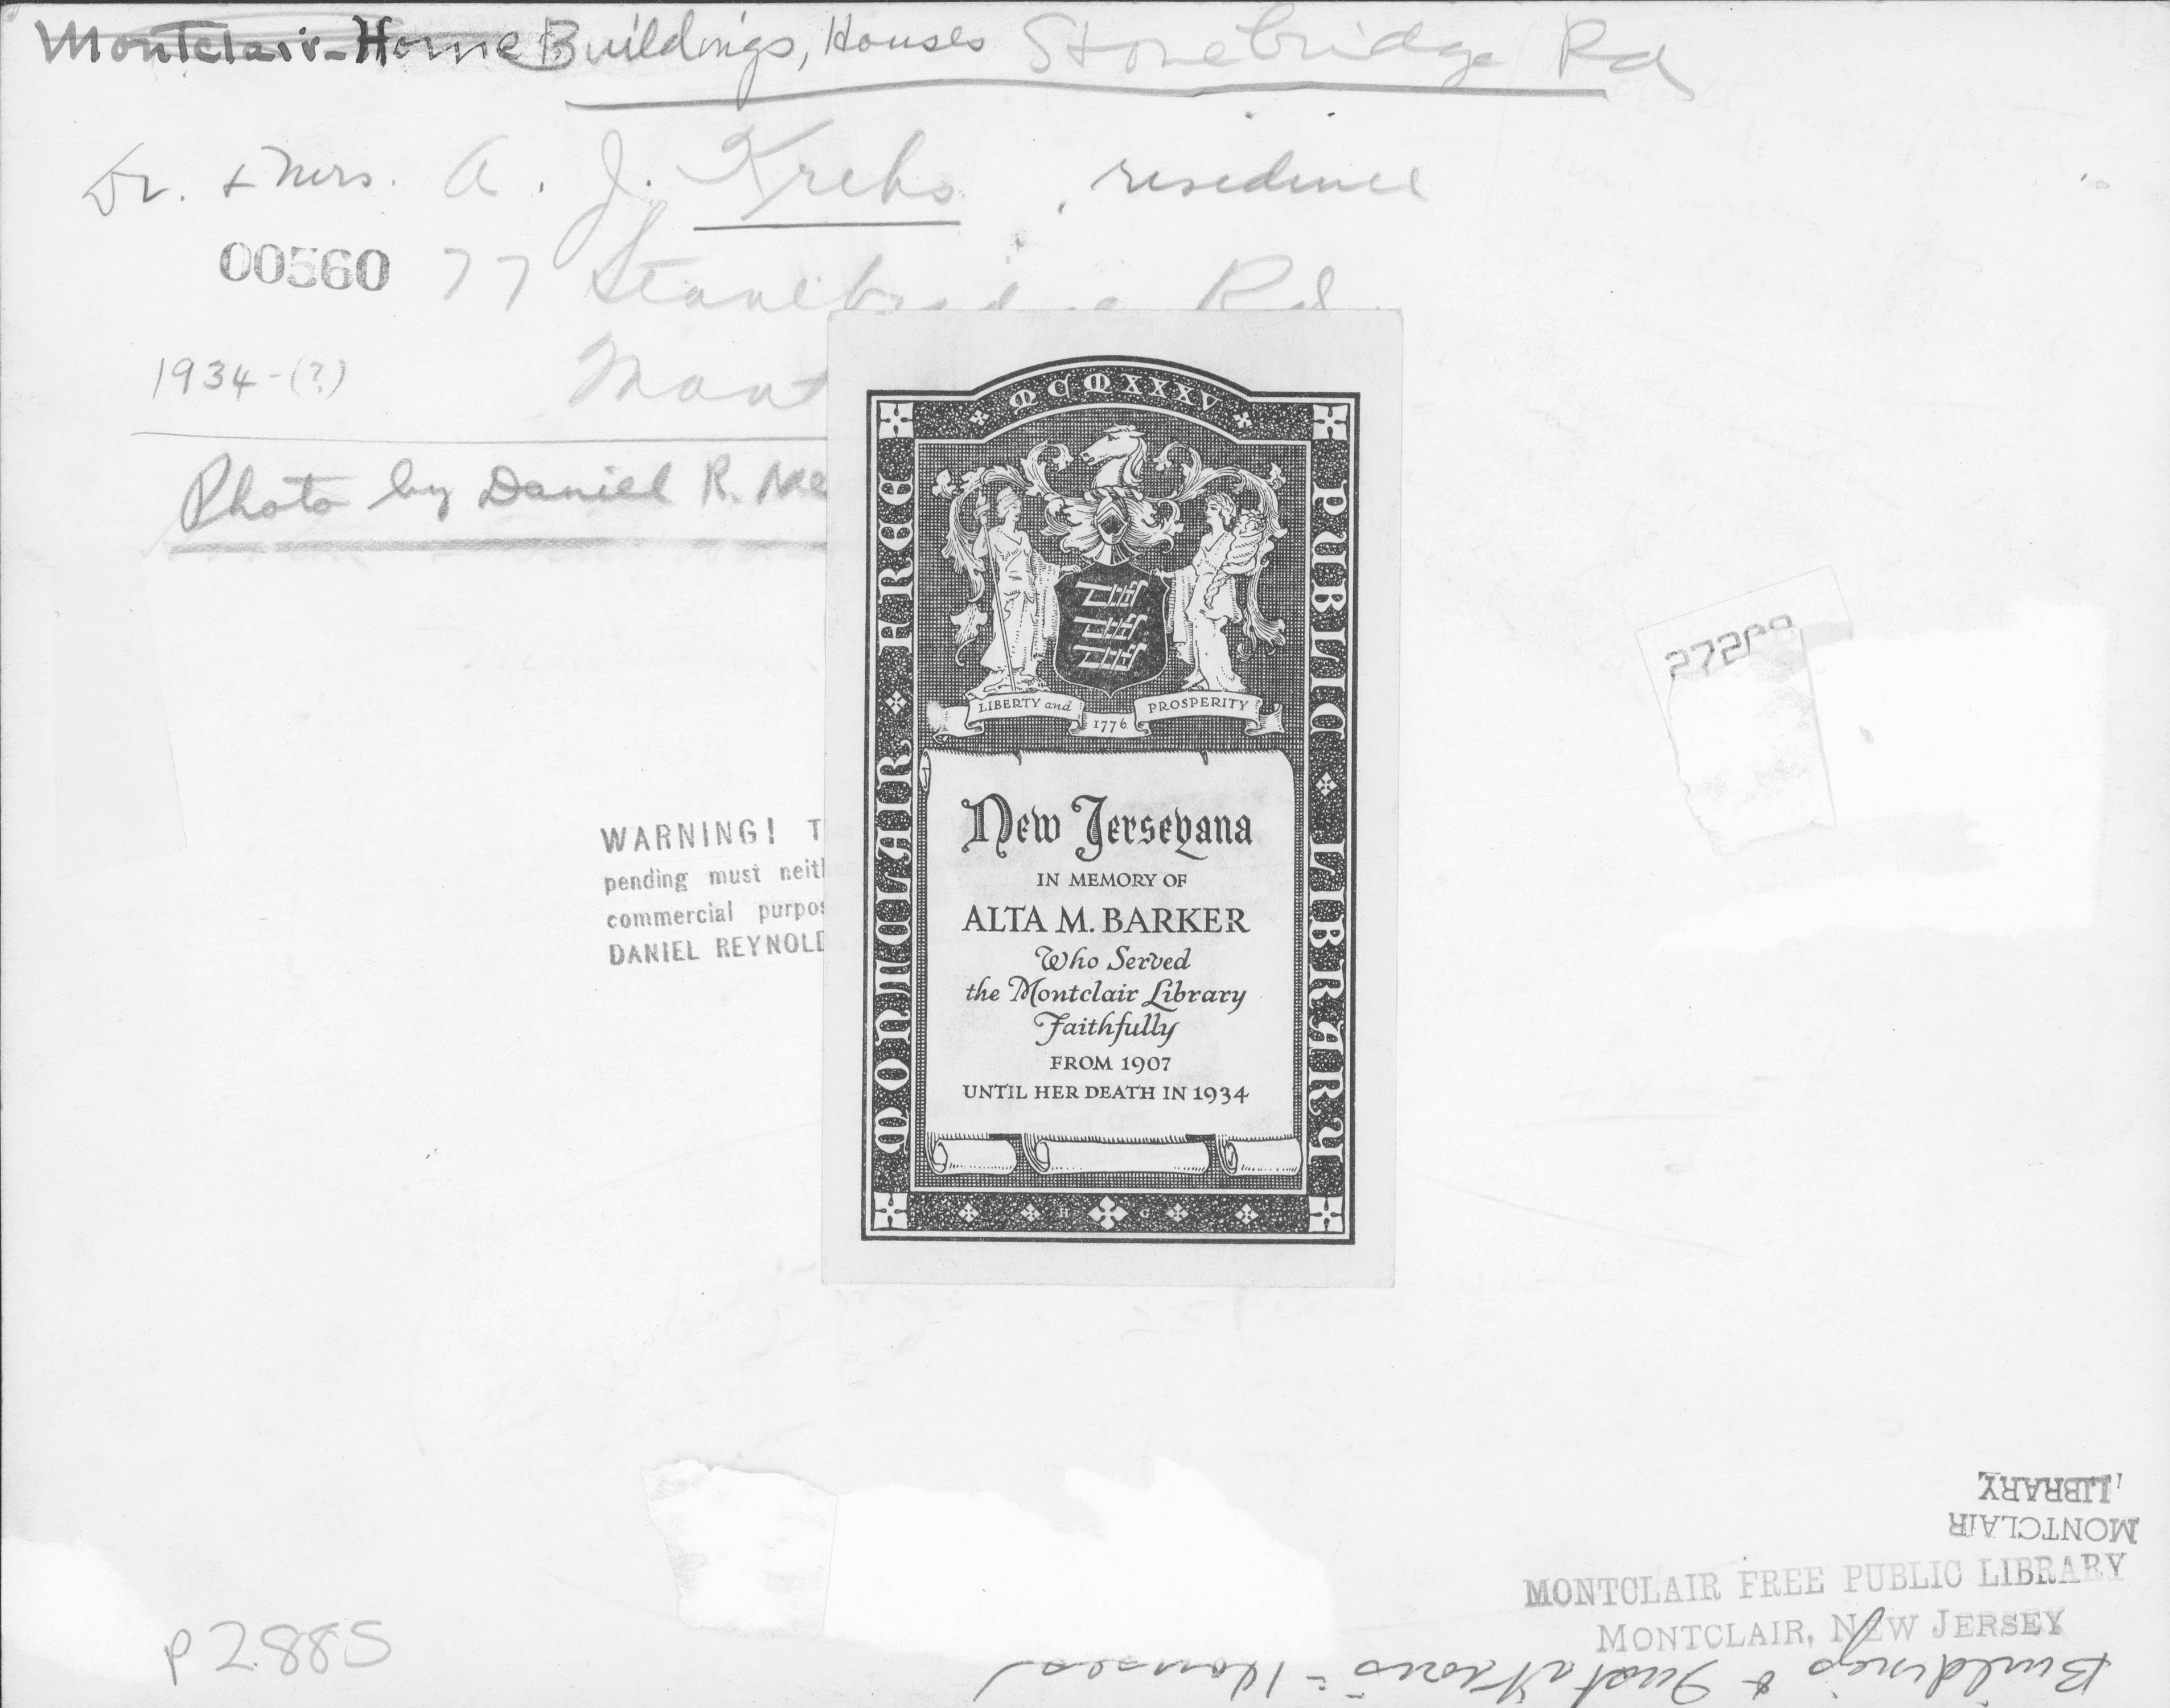 Montclair-Home Buildings, Houses Stonebridge Rd
Dr. + Mrs. A. J. Krebs, residence
00560 77 Stonebridge Rd.
1934-(?) Mont
Photo by Daniel R. Me
MCMXXXV
MONTCLAIR FREE
PUBLIC LIBRARY
LIBERTY and 1776 PROSPERITY
New Jerseyana
IN MEMORY OF
ALTA M. BARKER
Who Served
the Montclair Library
Faithfully
FROM 1907
UNTIL HER DEATH IN 1934
H G
WARNING! T
pending must neith
commercial purpos
DANIEL REYNOLD
LIBRARY
MONTCLAIR
MONTCLAIR FREE PUBLIC LIBRARY
MONTCLAIR, NEW JERSEY
Buildings & Institutions - Houses
P2885